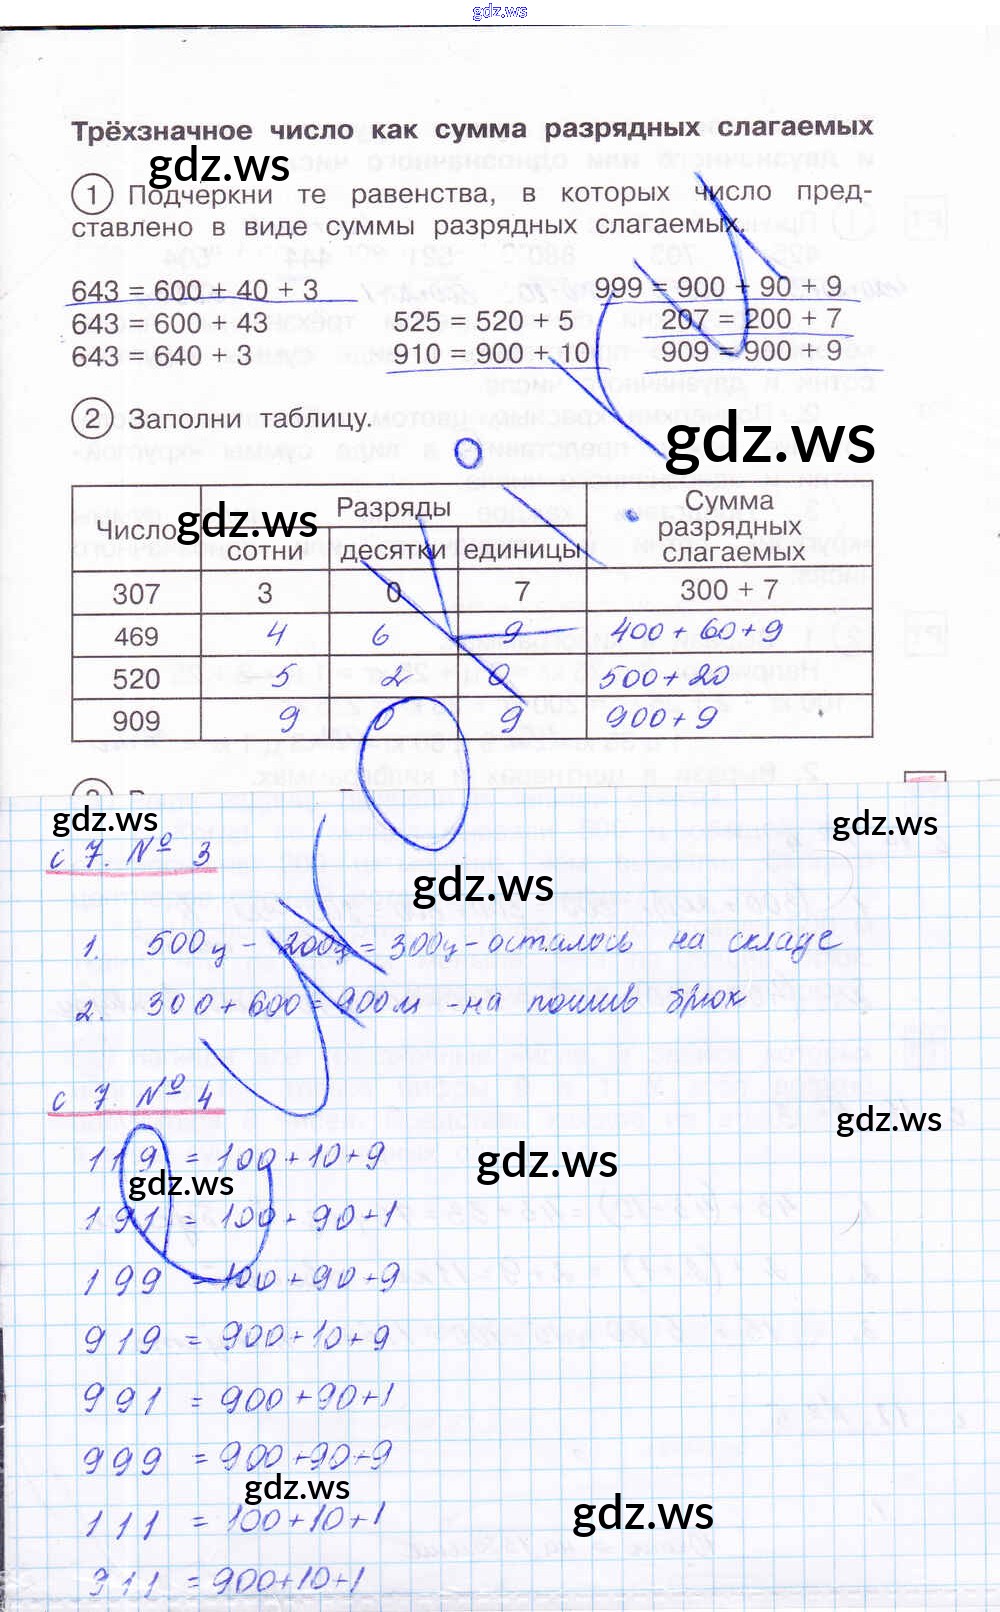 gdz.ws
Трёхзначное число как сумма разрядных слагаемых
gdz.ws
1 Подчеркни те равенства, в которых число пред-
ставлено в виде суммы разрядных слагаемых.
643 = 600 + 40 + 3 999 = 900 + 90 + 9
643 = 600 + 43 525 = 520 + 5 207 = 200 + 7
643 = 640 + 3 910 = 900 + 10 909 = 900 + 9
2 Заполни таблицу.
gdz.ws
Число Разряды Сумма разрядных слагаемых
gdz.ws
сотни десятки единицы
307 3 0 7 300 + 7
469 4 6 9 400 + 60 + 9
520 5 2 0 500 + 20
909 9 0 9 900 + 9
gdz.ws gdz.ws
с 7. № 3
gdz.ws
1. 500ц - 200ц = 300ц - осталось на складе
2. 300 + 600 = 900м - на пошив брюк
с 7. № 4
gdz.ws
119 = 100 + 10 + 9
gdz.ws gdz.ws
191 = 100 + 90 + 1
199 = 100 + 90 + 9
919 = 900 + 10 + 9
991 = 900 + 90 + 1
999 = 900 + 90 + 9
gdz.ws gdz.ws
111 = 100 + 10 + 1
911 = 900 + 10 + 1